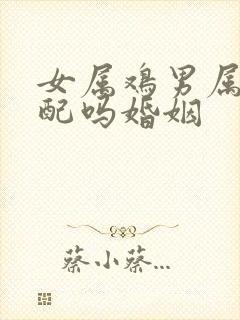 女属鸡男属
配吗婚姻
蔡小蔡...